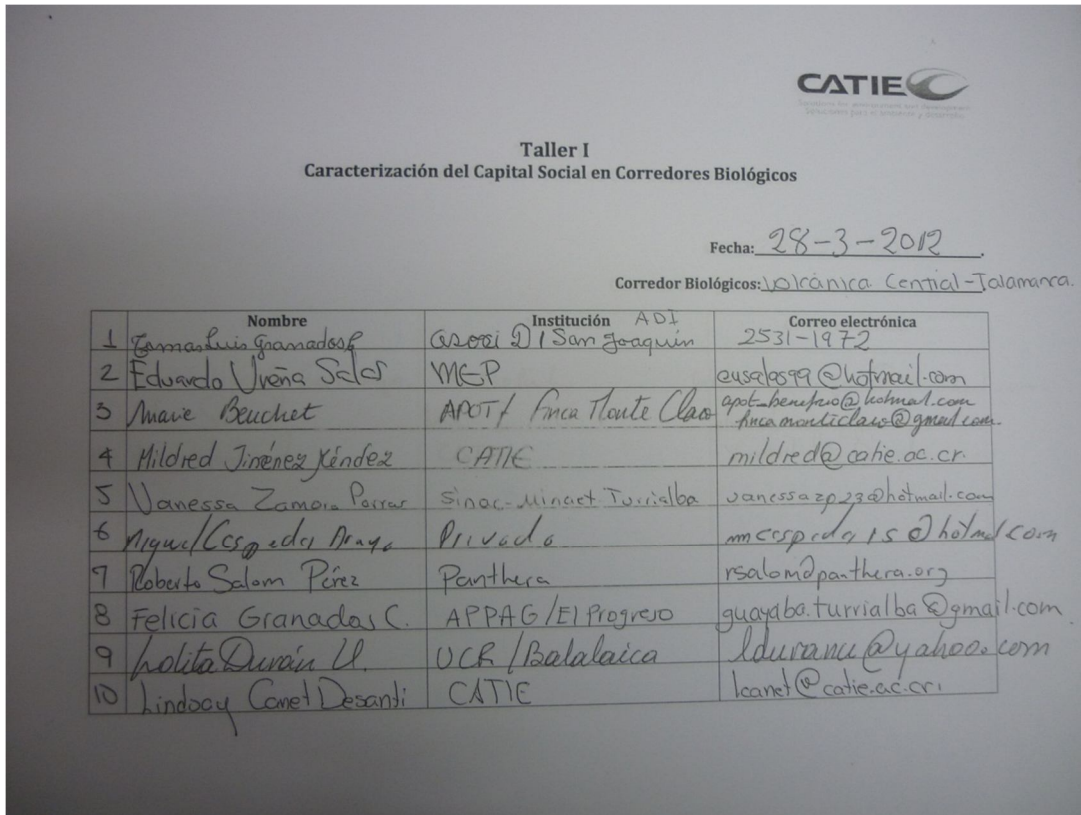 CATIE
Solutions for environment and development
Soluciones para el ambiente y desarrollo
Taller I
Caracterización del Capital Social en Corredores Biológicos
Fecha: 28-3-2012.
Corredor Biológicos: Volcánica Central-Talamanca.
Nombre Institución ADI Correo electrónica
1 Luis Granados San Joaquín 2531-1972
2 Eduardo Ureña Salas MEP eusalas99@hotmail.com
3 Beuchet APOT/ Finca Monte Claro apot_benefio@hotmail.com
fincamonticlaro@gmail.com
4 Mildred Jiménez Méndez CATIE mildred@catie.ac.cr.
5 Vanessa Zamora Porras Sinac-Minaet Turrialba vanessazp23@hotmail.com
6 Miguel Cespedes Araya Privado
7 Roberto Salom Pérez Panthera rsalom@panthera.org
8 Felicia Granados C. APPAG/El Progreso guayaba.turrialba@gmail.com
9 Lolita Durán U. UCR/Balalaica lduranu@yahoo.com
10 Lindsay Canet Desanti CATIE lcanet@catie.ac.cr.